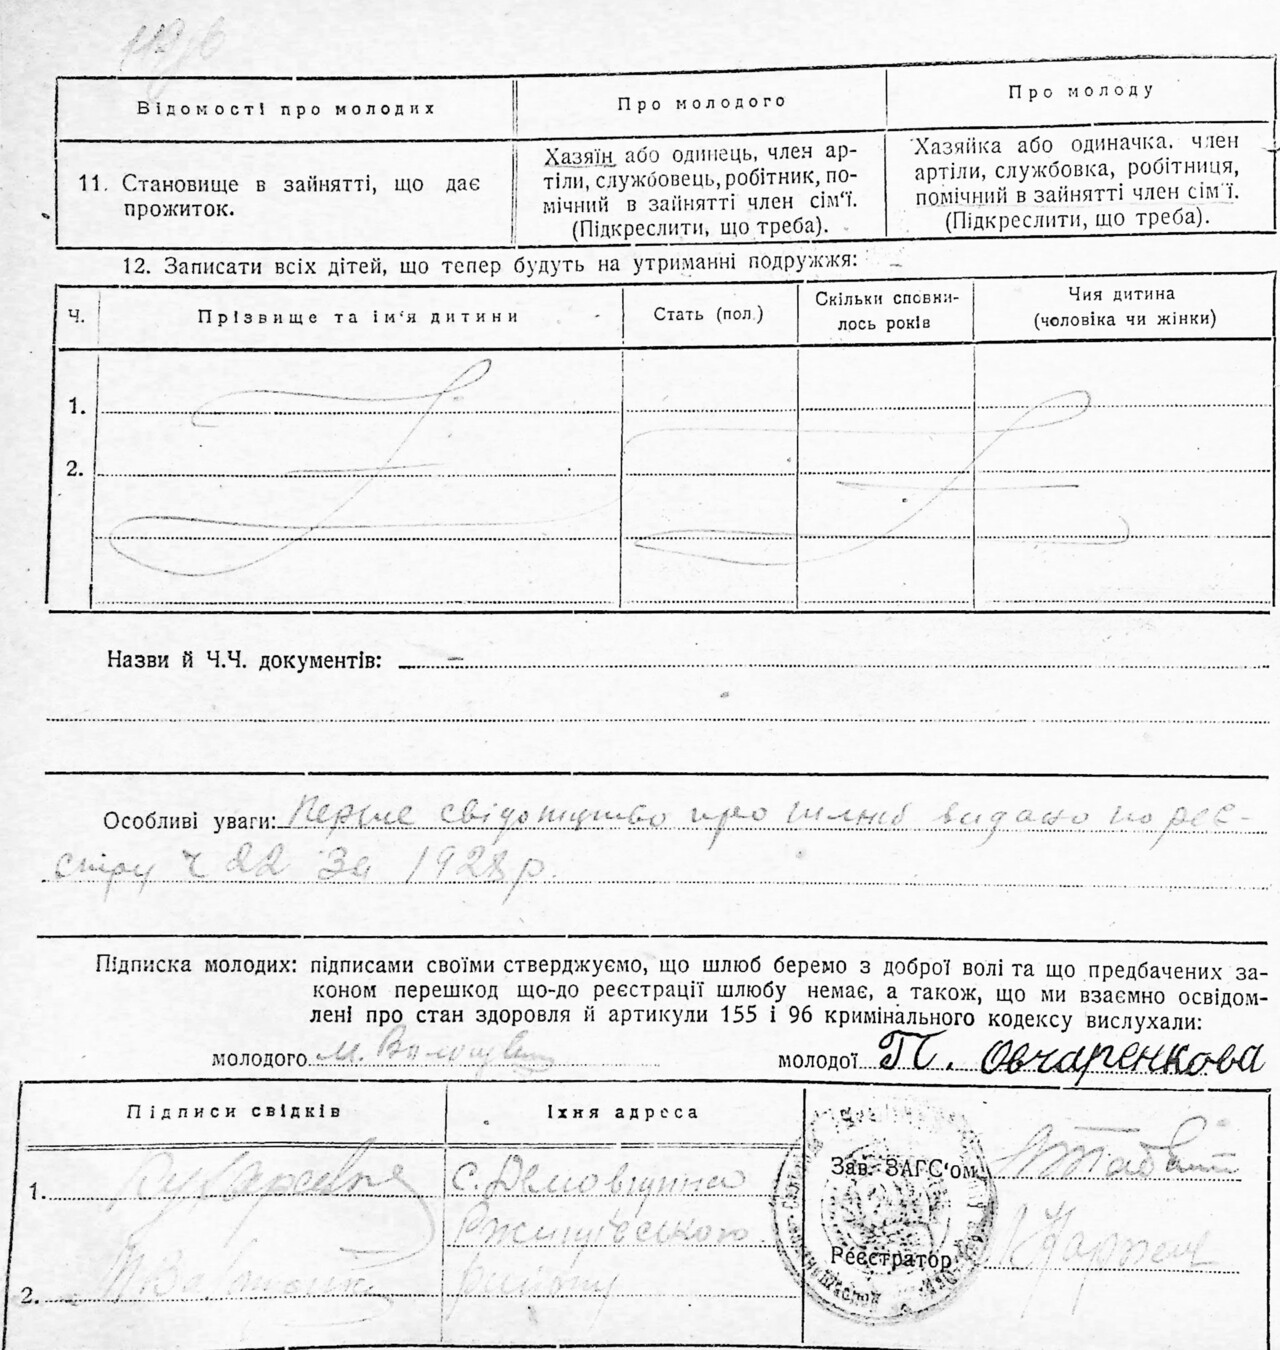 Відомості про молодих
Про молодого
Про молоду
11. Становище в зайнятті, що дає
прожиток.
Хазяїн або одинець, член ар-
тіли, службовець, робітник, по-
мічний в зайнятті член сім'ї.
(Підкреслити, що треба).
Хазяйка або одиначка. член
артіли, службовка, робітниця,
помічний в зайнятті член сім'ї.
(Підкреслити, що треба).
12. Записати всіх дітей, що тепер будуть на утриманні подружжя: —
Ч.
Прізвище та ім'я дитини
Стать (пол.)
Скільки сповни-
лось років
Чия дитина
(чоловіка чи жінки)
1.
2.
Назви й Ч.Ч. документів: —
Особливі уваги: Перше свідоцтво про шлюб видано по реє-
стру ч 22 за 1928 р.
Підписка молодих: підписами своїми стверджуємо, що шлюб беремо з доброї волі та що предбачених за-
коном перешкод що-до реєстрації шлюбу немає, а також, що ми взаємно освідом-
лені про стан здоровля й артикули 155 і 96 кримінального кодексу вислухали:
молодого М.
молодої П. Овчаренкова
Підписи свідків
Їхня адреса
1.
с.
району
2.
Зав. ЗАГС'ом
Реєстратор